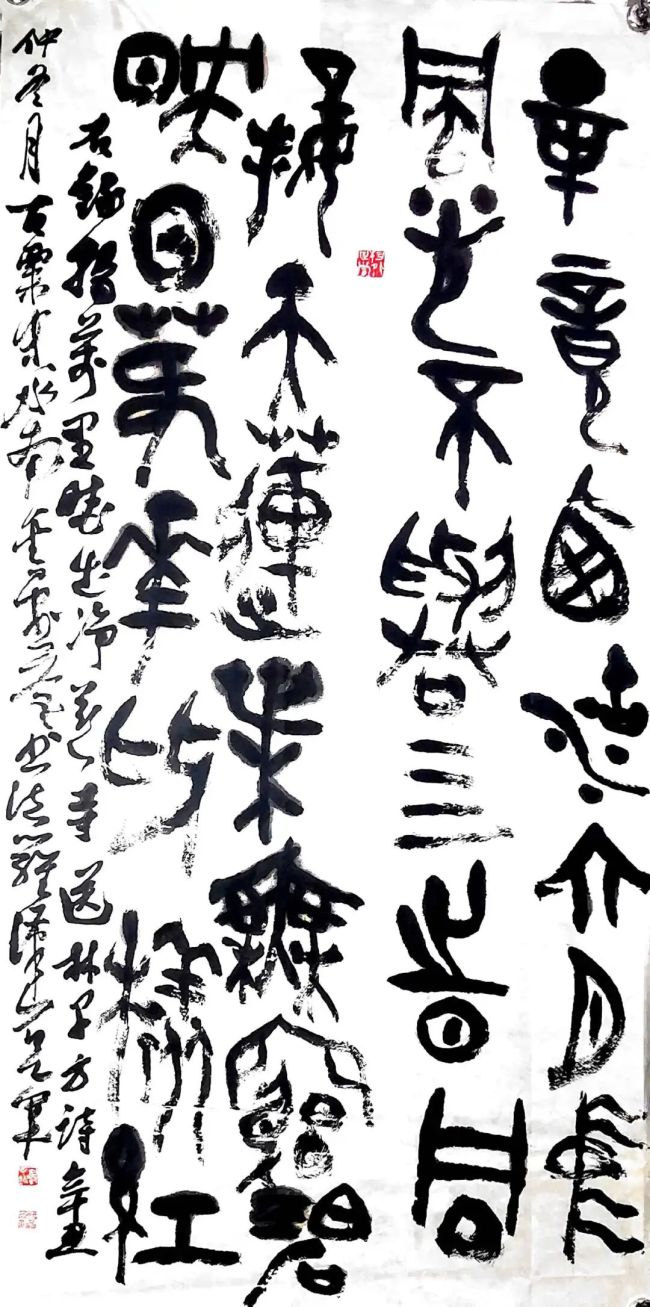 畢竟西湖六月中
風光不與四時同
接天蓮葉無窮碧
映日荷花別樣紅
右錄楊萬里曉出淨慈寺送林子方詩辛丑
仲冬月古粟末水南